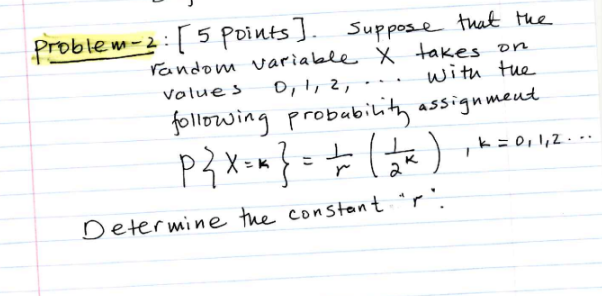 Problem-2: [5 points]. Suppose that the
random variable X takes on
values 0, 1, 2, ... with the
following probability assignment
P{X=k} = 1/r (1/2^k), k = 0, 1, 2...
Determine the constant "r".